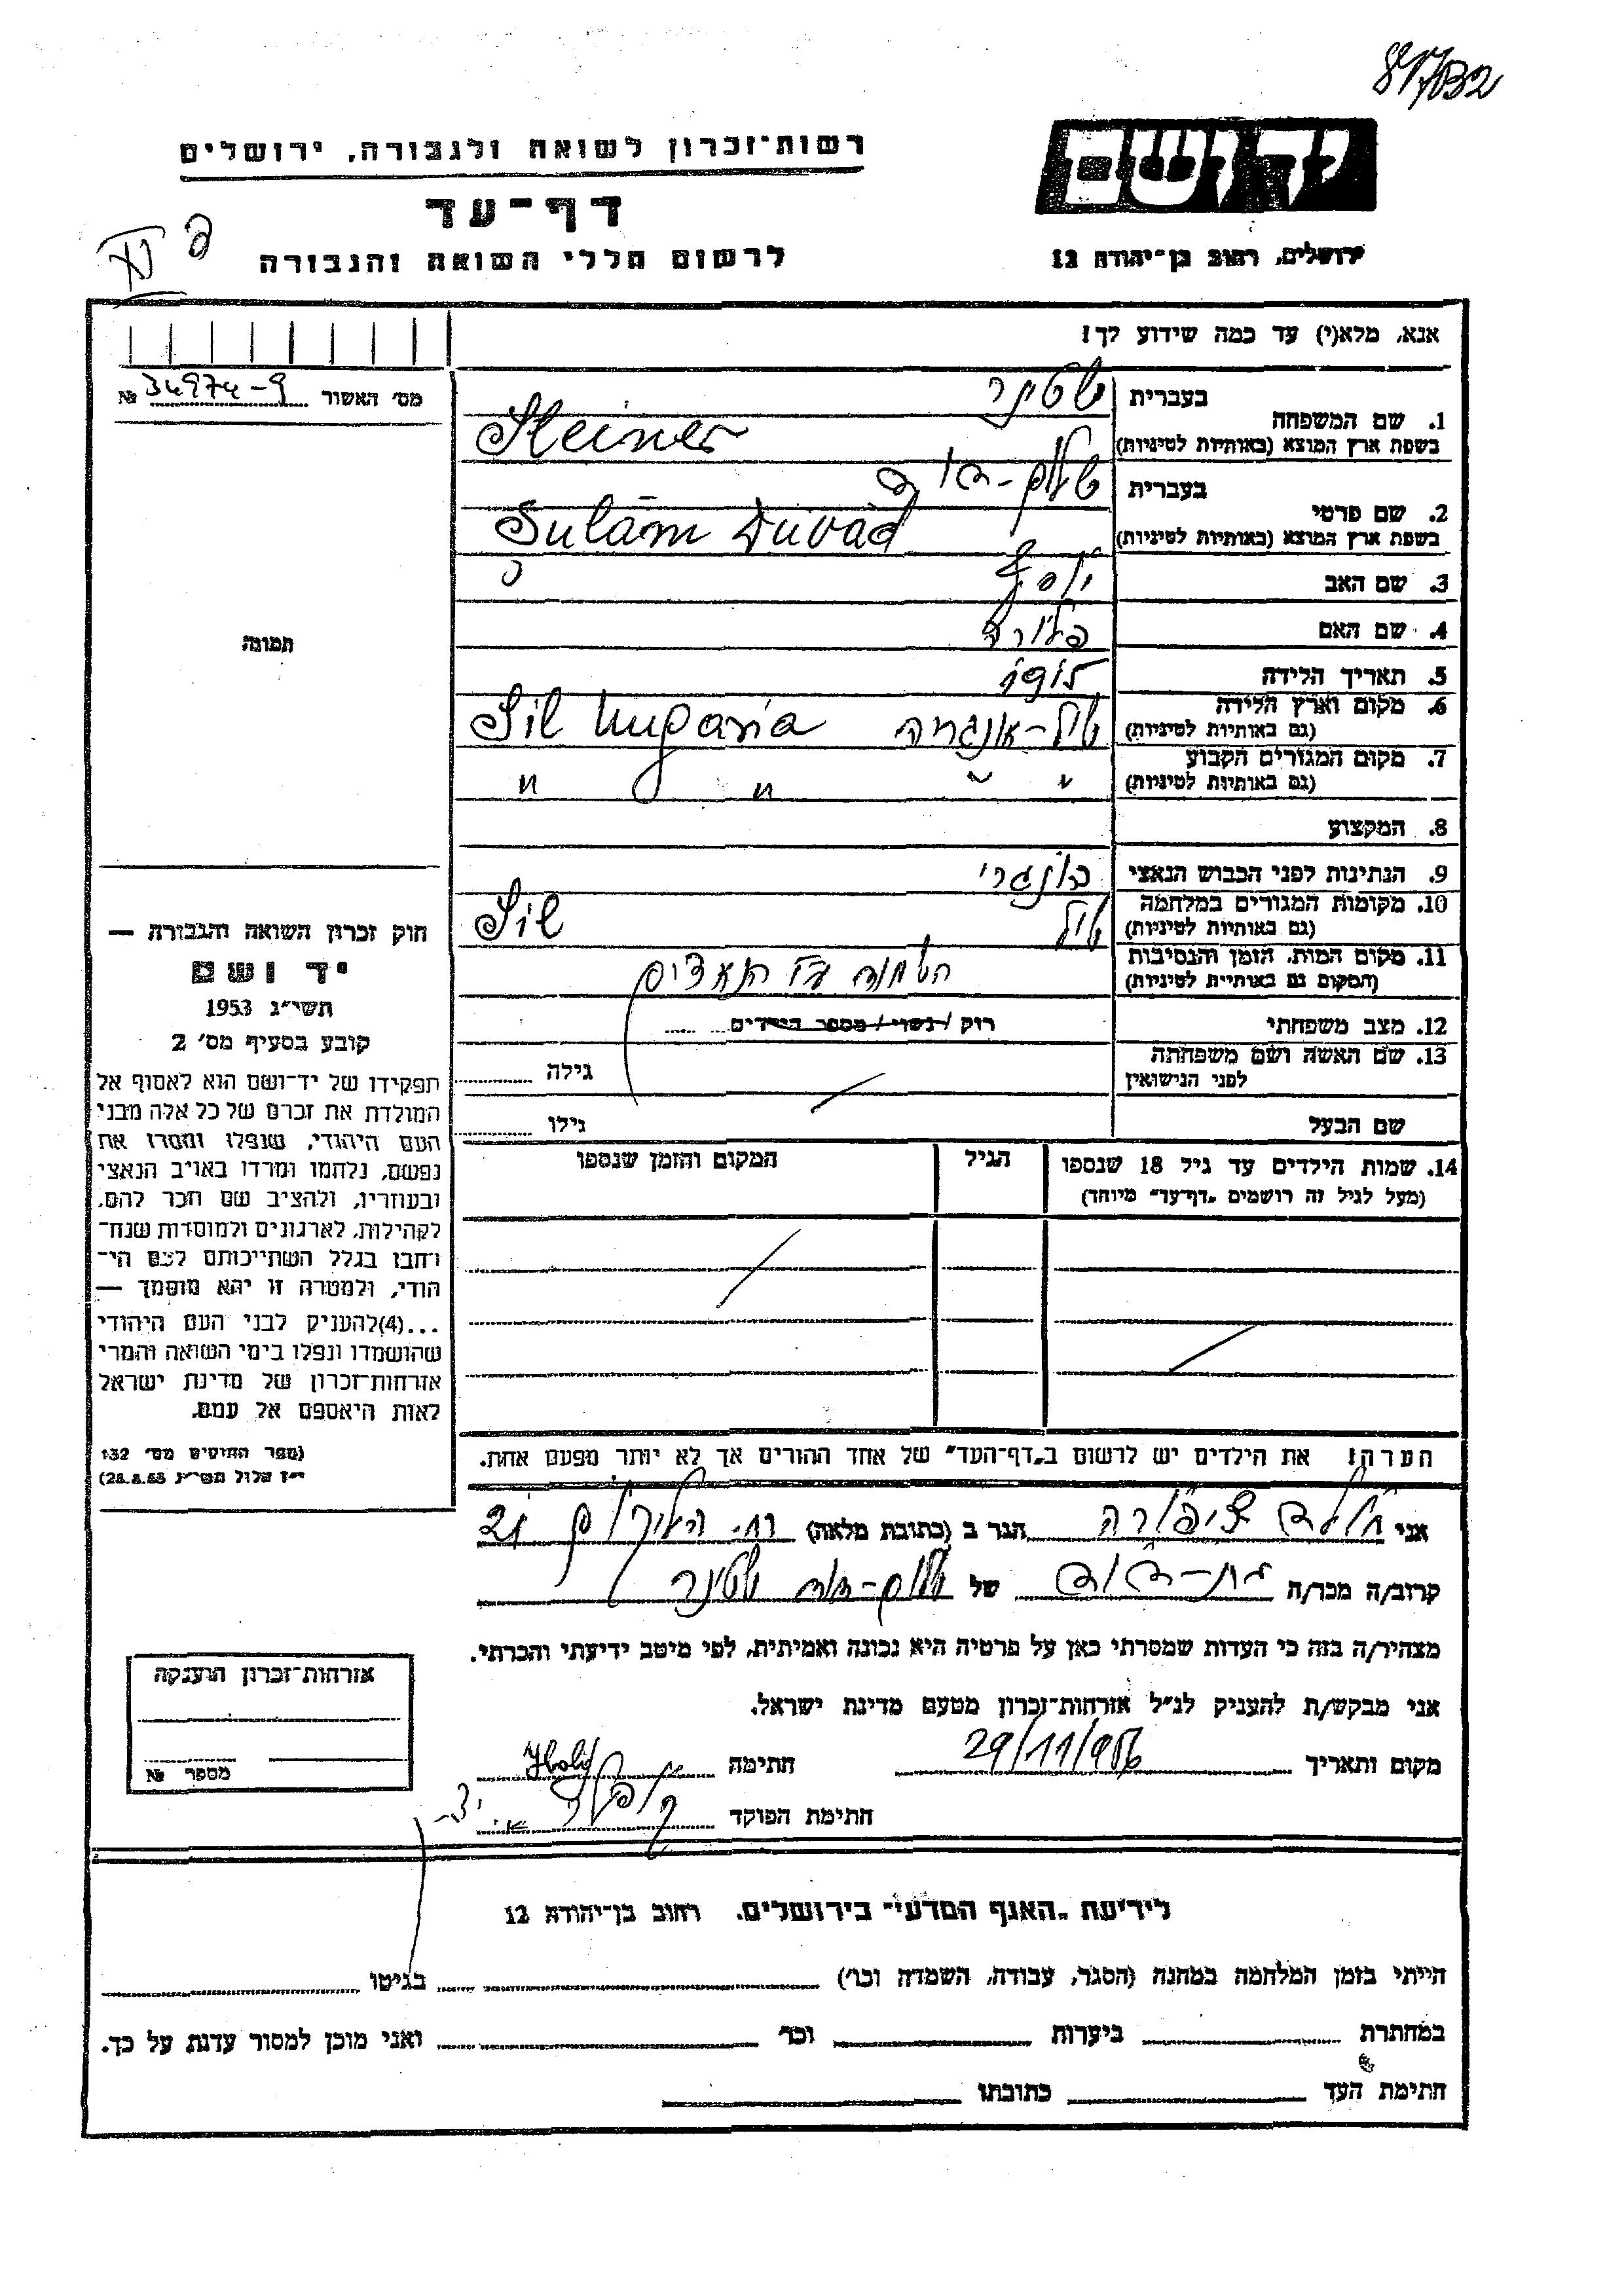 רשות-זכרון לשואה ולגבורה, ירושלים
יד ושם
דף-עד
לרשום חללי השואה והגבורה
ירושלים, רחוב בן-יהודה 12
אנא, מלא(י) עד כמה שידוע לך!
מס' האשור № 34974-9
1. שם המשפחה
בעברית שטינר
בשפת ארץ המוצא (באותיות לטיניות) Steiner
2. שם פרטי
בעברית שלום-דוד
בשפת ארץ המוצא (באותיות לטיניות) Sulām Duvād
3. שם האב יוסף
4. שם האם
5. תאריך הלידה 1915
6. מקום וארץ הלידה
(גם באותיות לטיניות) סיל-אונגריה Sil Ungaria
7. מקום המגורים הקבוע
(גם באותיות לטיניות) " " " "
8. המקצוע
9. הנתינות לפני הכבוש הנאצי הונגרי
10. מקומות המגורים במלחמה
(גם באותיות לטיניות) סיל Sil
11. מקום המות, הזמן והנסיבות
(המקום גם באותיית לטיניות)
12. מצב משפחתי רוק / נשוי / מספר הילדים
13. שם האשה ושם משפחתה
לפני הנישואין גילה
שם הבעל גילו
14. שמות הילדים עד גיל 18 שנספו
(מעל לגיל זה רושמים "דף-עד" מיוחד)
הגיל
המקום והזמן שנספו
הערה! את הילדים יש לרשום ב"דף-העד" של אחד ההורים אך לא יותר מפעם אחת.
תמונה
חוק זכרון השואה והגבורה —
יד ושם
תשי"ג 1953
קובע בסעיף מס' 2
תפקידו של יד-ושם הוא לאסוף אל
המולדת את זכרם של כל אלה מבני
העם היהודי, שנפלו ומסרו את
נפשם, נלחמו ומרדו באויב הנאצי
ובעוזריו, ולהציב שם וזכר להם,
לקהילות, לארגונים ולמוסדות שנח-
רחבו בגלל השתייכותם לעם הי-
הודי, ולמטרה זו יהא מוסמך —
...(4)להעניק לבני העם היהודי
שהושמדו ונפלו בימי השואה והמרי
אזרחות-זכרון של מדינת ישראל
לאות היאספם אל עמם.
(ספר החוקים מס' 132
י"ז אלול תשי"ג 28.8.53)
אני ציפורה הגר ב (כתובת מלאה) רח. 21
קרוב/ה מכר/ה בת-דוד של שלום-דוד שטינר
מצהיר/ה בזה כי העדות שמסרתי כאן על פרטיה היא נכונה ואמיתית, לפי מיטב ידיעתי והכרתי.
אני מבקש/ת להעניק לנ"ל אזרחות-זכרון מטעם מדינת ישראל.
מקום ותאריך 29/11/956 חתימה
חתימת הפוקד
אזרחות-זכרון הוענקה
מספר №
לידיעת "האגף המדעי" בירושלים, רחוב בן-יהודה 12
הייתי בזמן המלחמה במחנה (הסגר, עבודה, השמדה וכו') בגיטו
במחתרת ביערות וכו' ואני מוכן למסור עדות על כך.
חתימת העד כתובתו